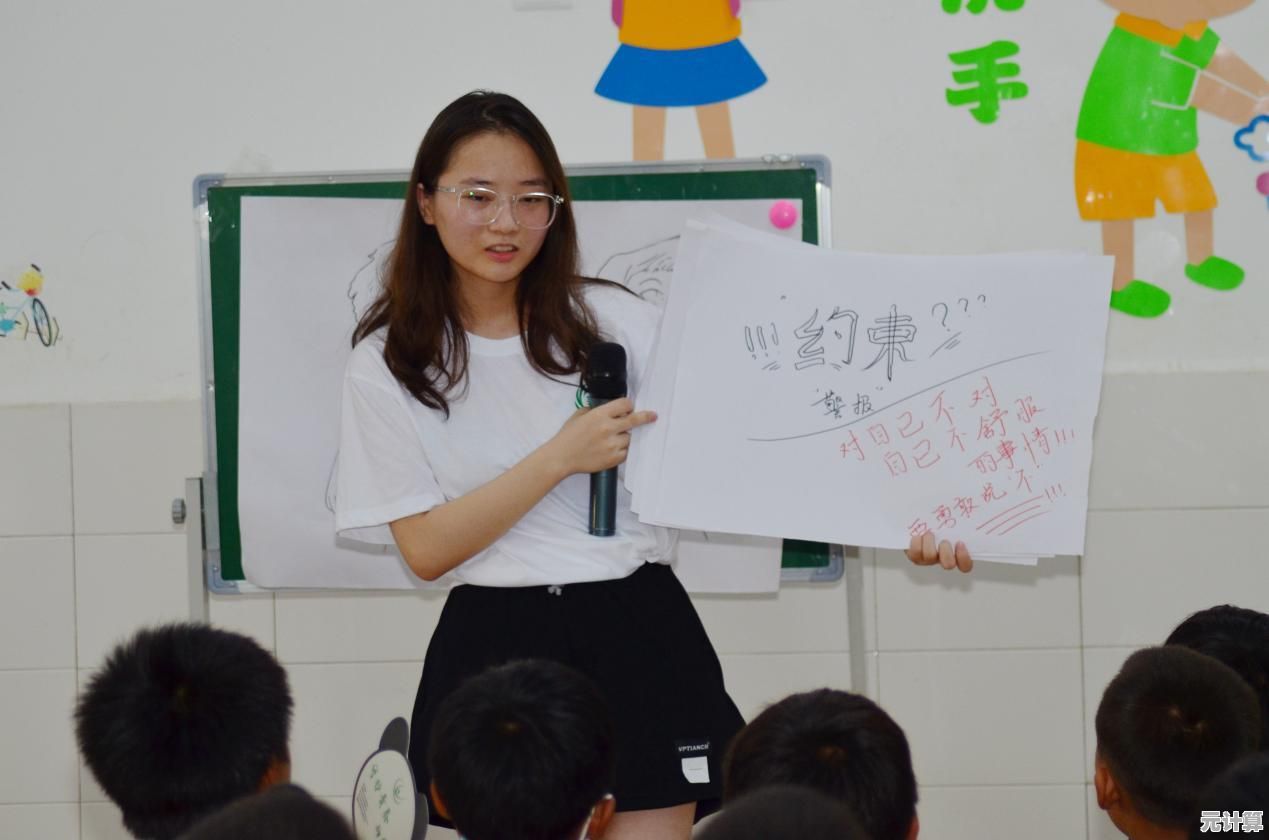 手
!!!约束???
"警报"
对自己不对
自己不舒服
的事情!!!
要勇敢说"不"!!!
VPTIANCH
元计算